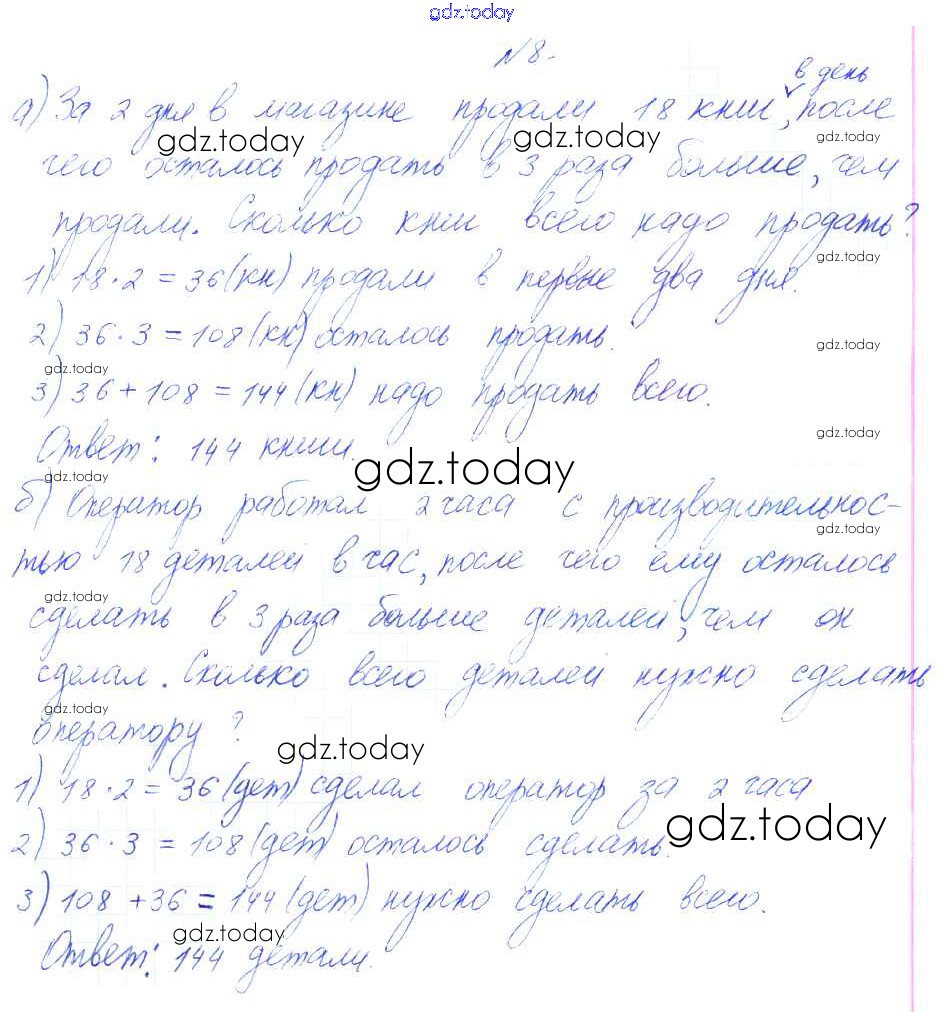 gdz.today
N8.
в день
а) За 2 дня в магазине продали 18 книг, после
gdz.today gdz.today gdz.today
чего осталось продать в 3 раза больше, чем
продали. Сколько книг всего надо продать?
gdz.today
1) 18·2=36(кн) продали в первые два дня.
2) 36·3=108(кн) осталось продать.
gdz.today
gdz.today
3) 36+108=144(кн) надо продать всего.
Ответ: 144 книги.
gdz.today
gdz.today
gdz.today
б) Оператор работал 2 часа с производительнос-
gdz.today
тью 18 деталей в час, после чего ему осталось
gdz.today
сделать в 3 раза больше деталей, чем он
сделал. Сколько всего деталей нужно сделать
gdz.today
оператору?
gdz.today
1) 18·2=36(дет) сделал оператор за 2 часа
gdz.today
2) 36·3=108(дет) осталось сделать.
3) 108+36=144(дет) нужно сделать всего.
gdz.today
Ответ: 144 детали.